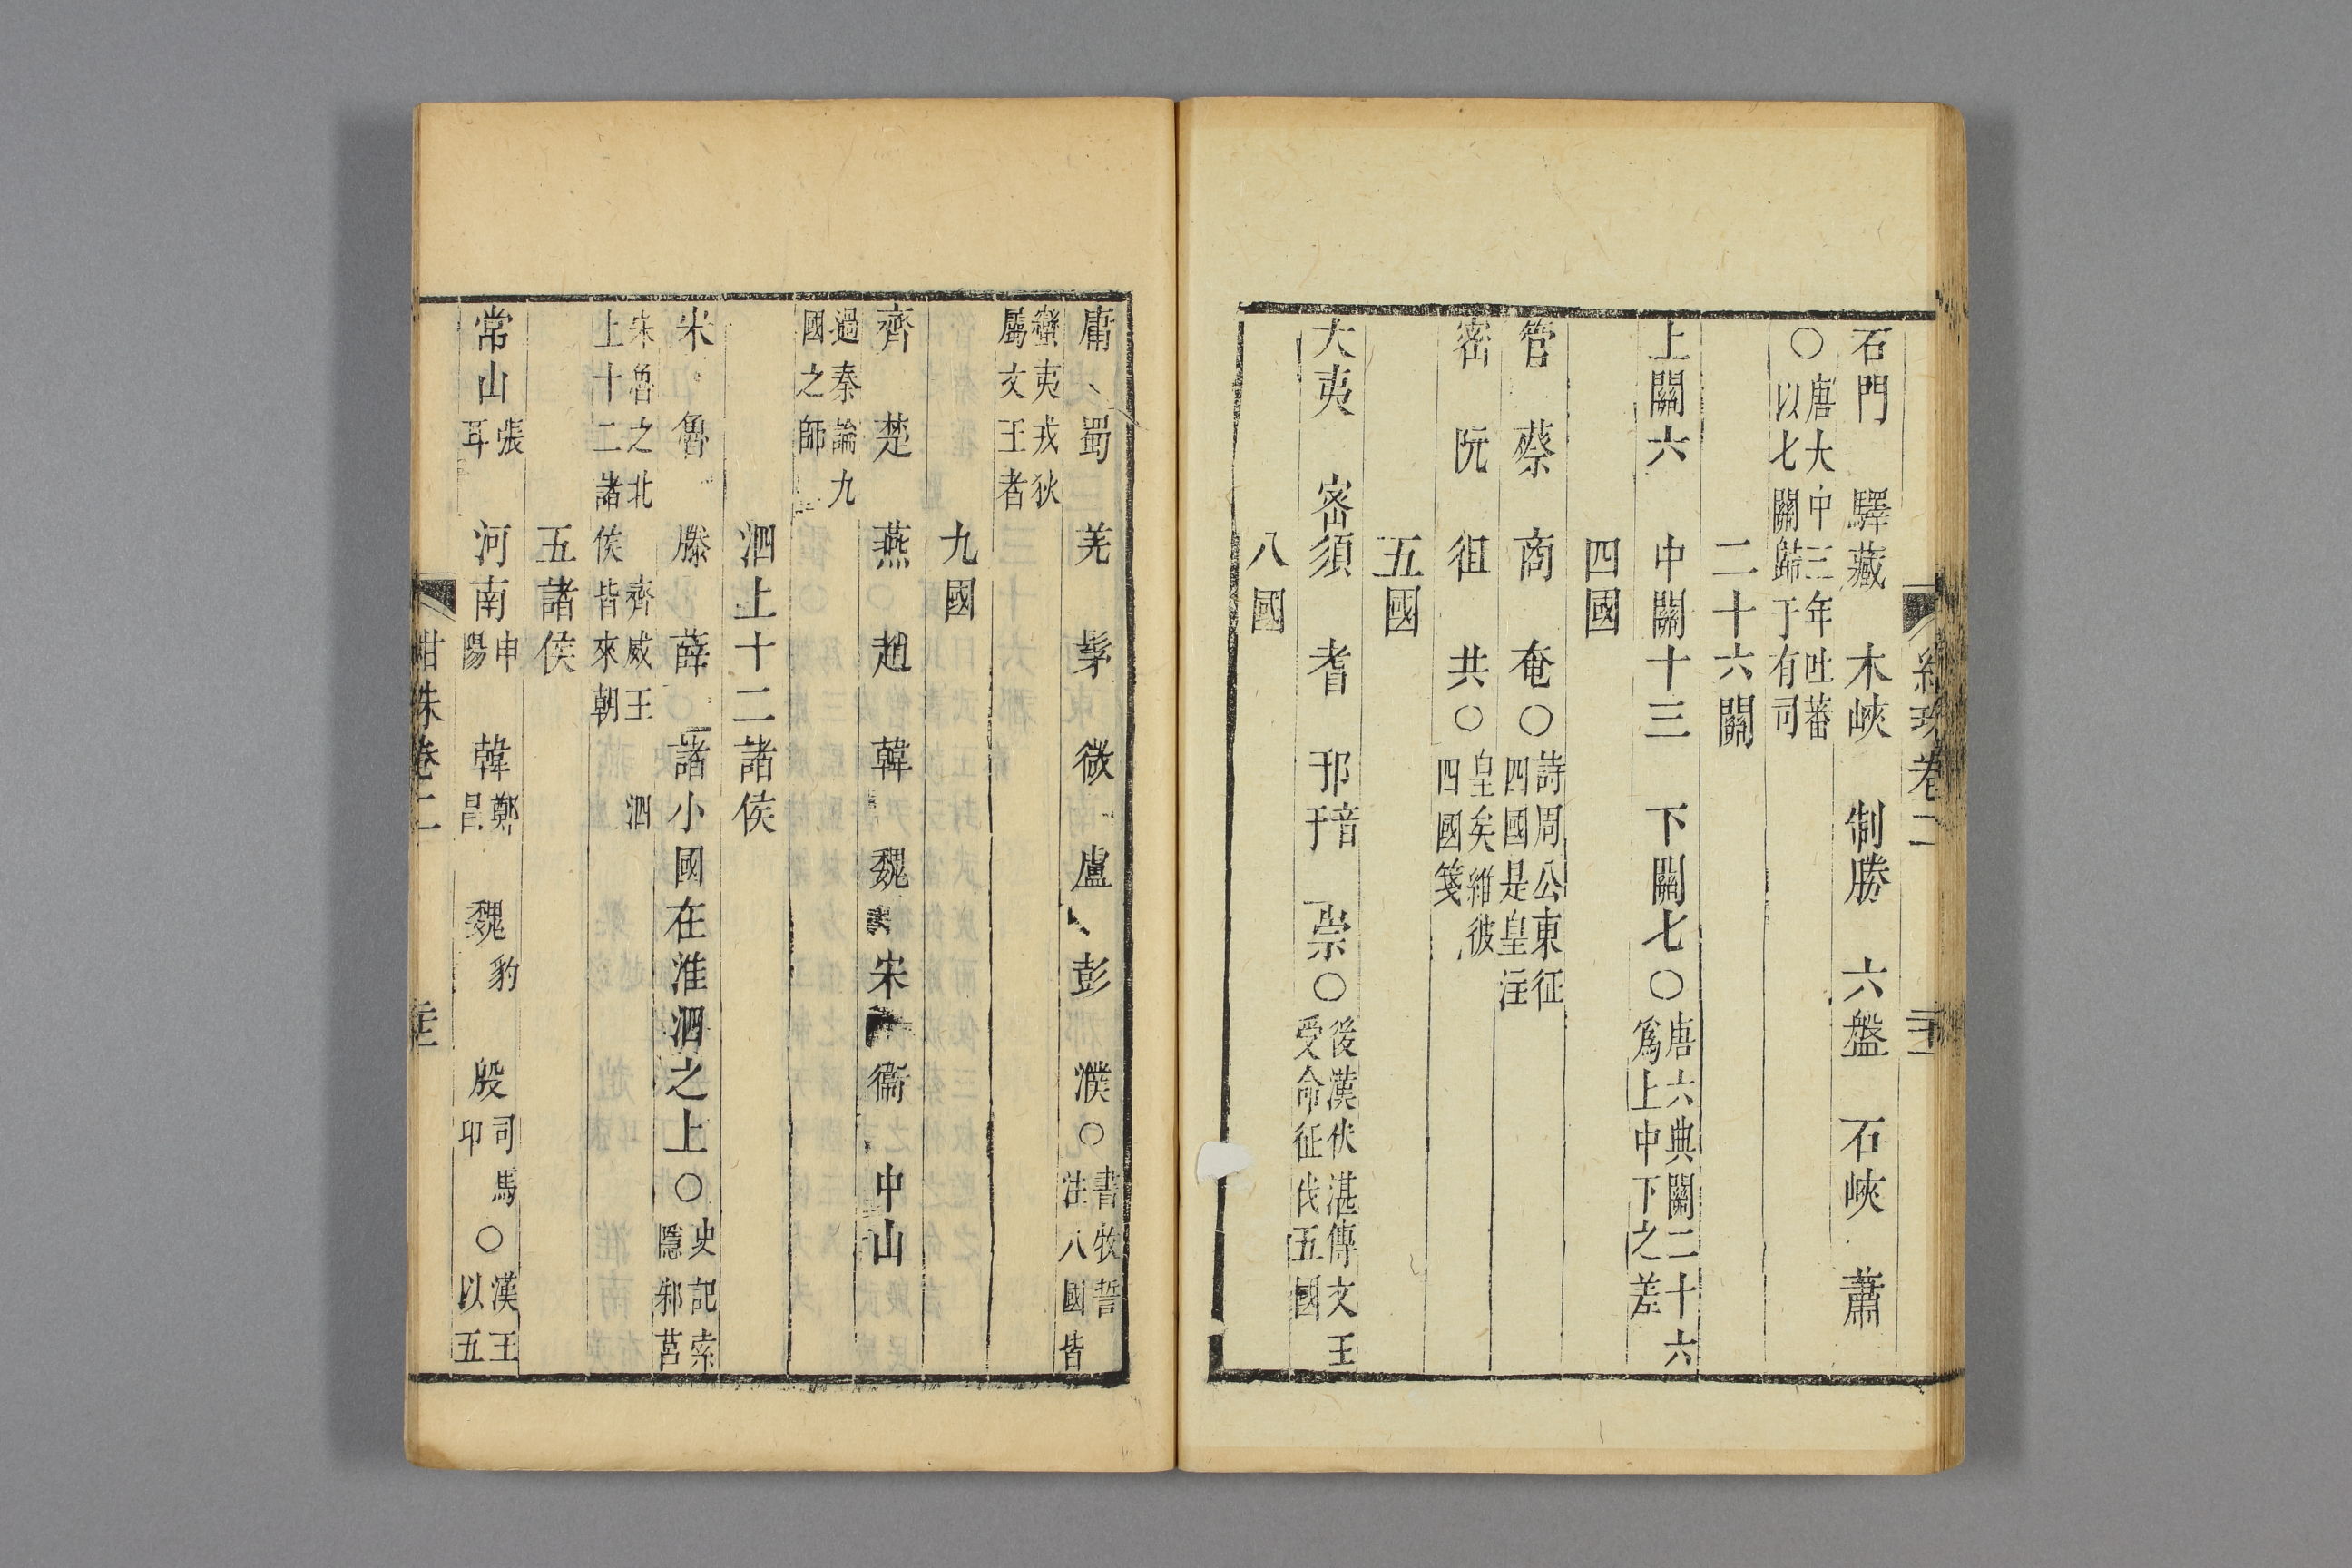 石門 驛藏 木峽 制勝 六盤 石峽 蕭
○唐大中三年吐蕃
以七關歸于有司
二十六關
上關六 中關十三 下關七○唐六典關二十六
爲上中下之差
四國
管 蔡 商 奄○詩周公東征
四國是皇注
密 阮 徂 共○皇矣維彼
四國箋
五國
大夷 密須 耆 邘音于 崇○後漢伏湛傳文王
受命征伐五國
八國
卷二
庸 蜀 羌 髳 微 盧 彭 濮○書牧誓
注八國皆
蠻夷戎狄
屬文王者
九國
齊 楚 燕 趙 韓 魏 宋 衞 中山
過秦論九
國之師
泗上十二諸侯
宋 魯 滕 薛 諸小國在淮泗之上○史記索
隱邾莒
宋魯之北 齊威王 泗
上十二諸侯皆來朝
五諸侯
常山張耳 河南申陽 韓鄭昌 魏豹 殷司馬卬○漢王
以五
紺珠卷二